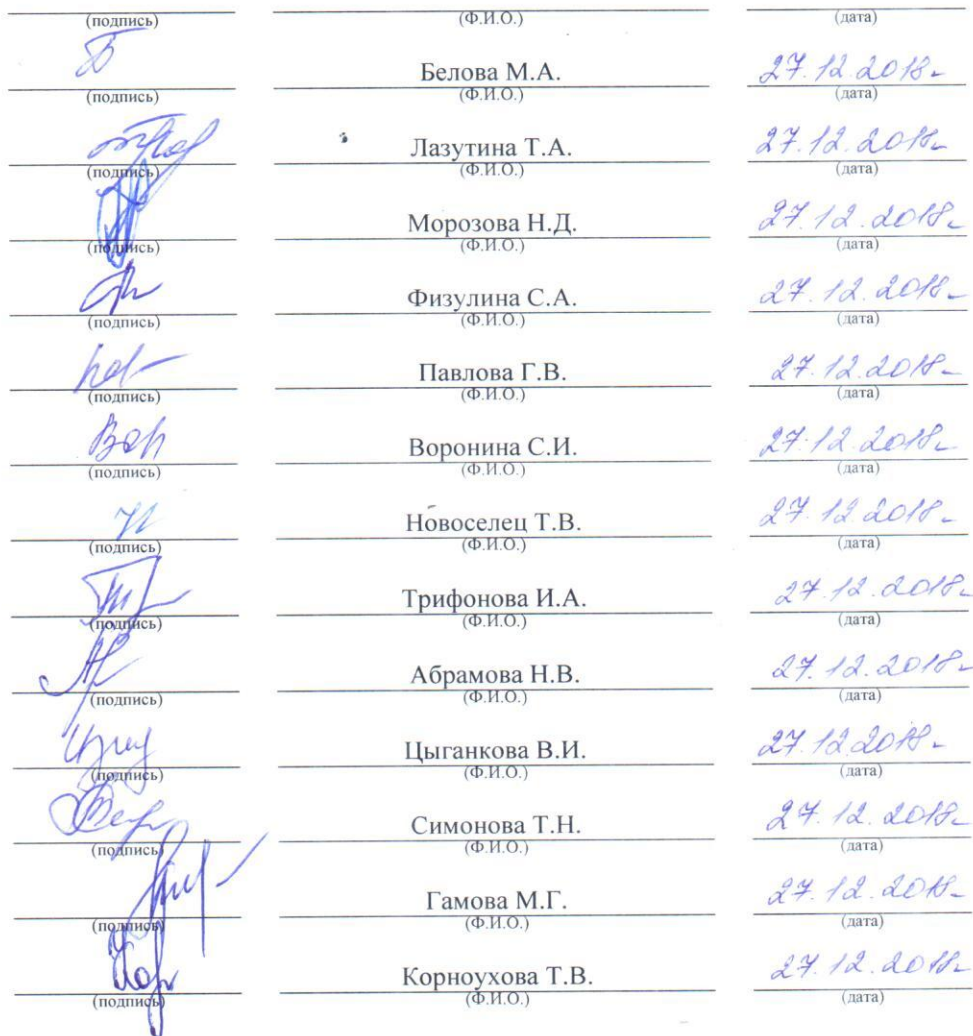 (подпись) (Ф.И.О.) (дата)
Белова М.А. 27.12.2018г
(подпись) (Ф.И.О.) (дата)
Лазутина Т.А. 27.12.2018г
(подпись) (Ф.И.О.) (дата)
Морозова Н.Д. 27.12.2018г
(подпись) (Ф.И.О.) (дата)
Физулина С.А. 27.12.2018г
(подпись) (Ф.И.О.) (дата)
Павлова Г.В. 27.12.2018г
(подпись) (Ф.И.О.) (дата)
Воронина С.И. 27.12.2018г
(подпись) (Ф.И.О.) (дата)
Новоселец Т.В. 27.12.2018г
(подпись) (Ф.И.О.) (дата)
Трифонова И.А. 27.12.2018г
(подпись) (Ф.И.О.) (дата)
Абрамова Н.В. 27.12.2018г
(подпись) (Ф.И.О.) (дата)
Цыганкова В.И. 27.12.2018г
(подпись) (Ф.И.О.) (дата)
Симонова Т.Н. 27.12.2018г
(подпись) (Ф.И.О.) (дата)
Гамова М.Г. 27.12.2018г
(подпись) (Ф.И.О.) (дата)
Корноухова Т.В. 27.12.2018г
(подпись) (Ф.И.О.) (дата)